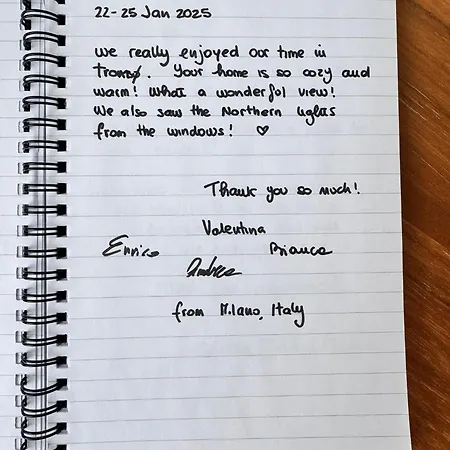 22-25 Jan 2025
We really enjoyed our time in
Tromsø. Your home is so cozy and
warm! What a wonderful view!
We also saw the Northern lights
from the windows! ♡
Thank you so much!
Valentina
Enrico Bianca
Andrea
from Milano, Italy